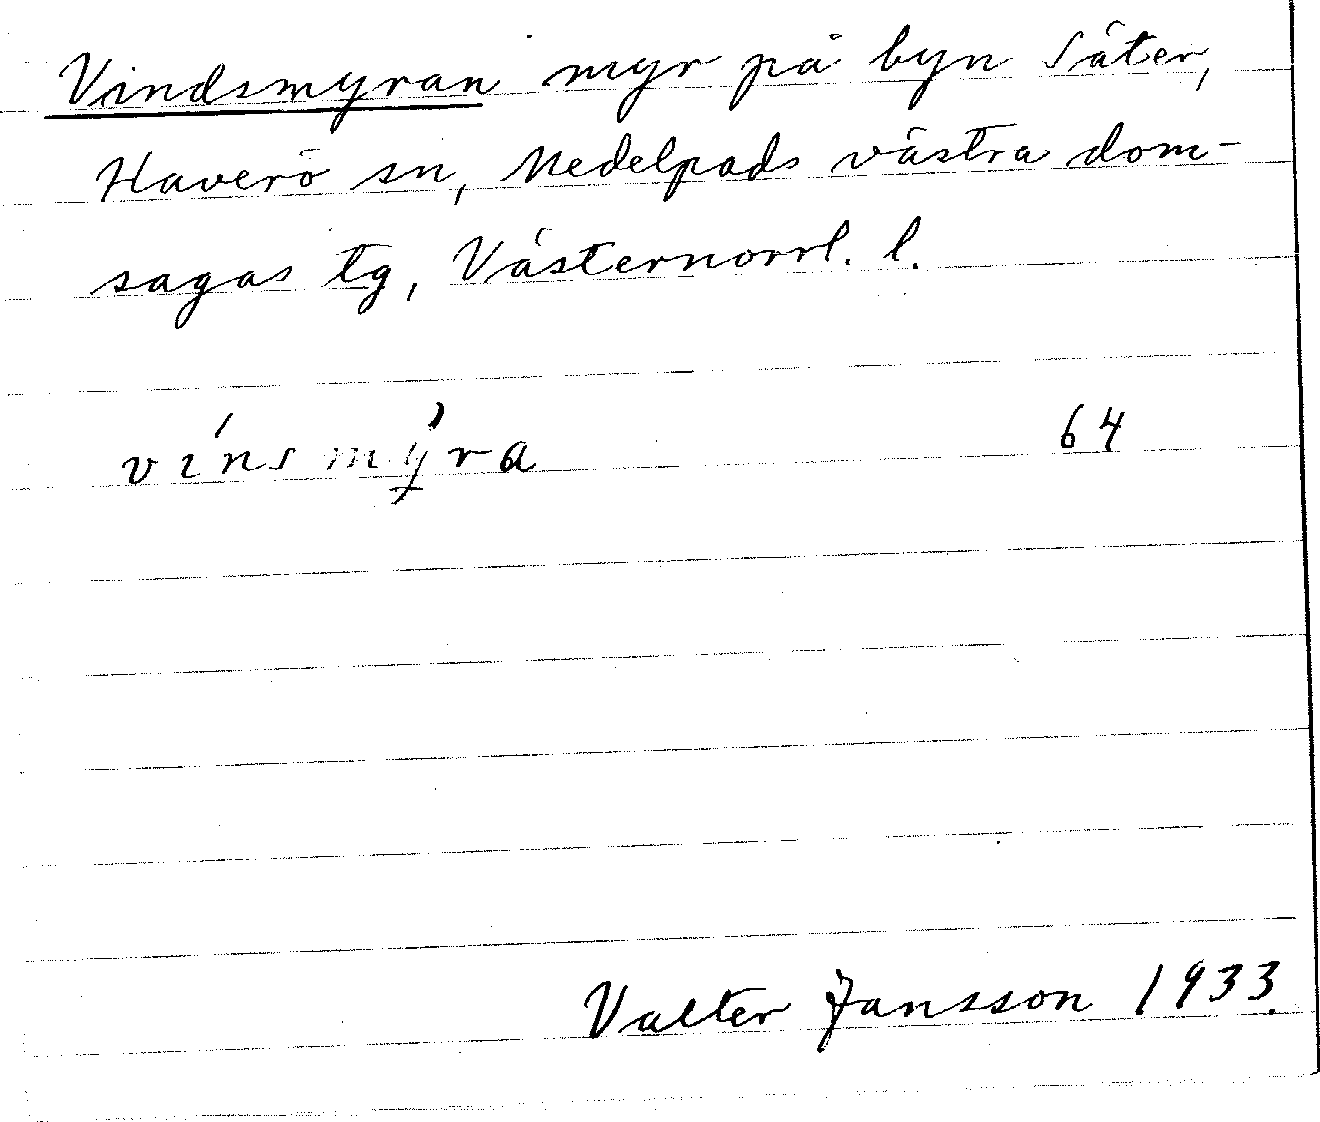 Vindsmyran myr på byn Säter,
Haverö sn, Medelpads västra dom-
sagas tg, Västernorrl. l.
vínsmỳ̨ra 64
Valter Jansson 1933.